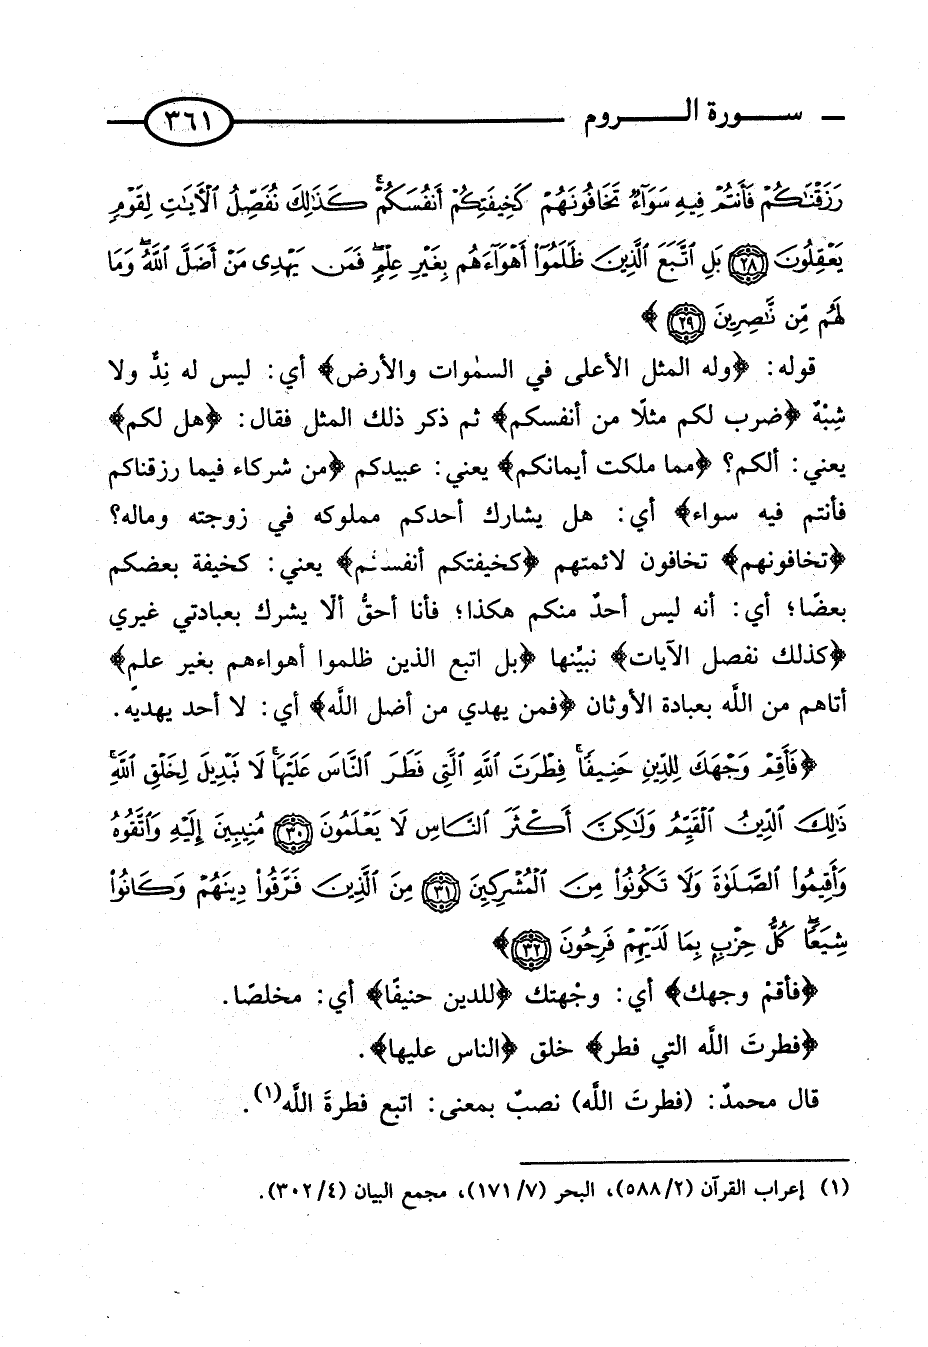 ســورة الــروم ٣٦١
رَزَقْنَٰكُمْ فَأَنتُمْ فِيهِ سَوَآءٌ تَخَافُونَهُمْ كَخِيفَتِكُمْ أَنفُسَكُمْ ۚ كَذَٰلِكَ نُفَصِّلُ ٱلْءَايَٰتِ لِقَوْمٍ
يَعْقِلُونَ ٢٨ بَلِ ٱتَّبَعَ ٱلَّذِينَ ظَلَمُوٓا۟ أَهْوَآءَهُم بِغَيْرِ عِلْمٍ ۖ فَمَن يَهْدِى مَنْ أَضَلَّ ٱللَّهُ ۖ وَمَا
لَهُم مِّن نَّٰصِرِينَ ٢٩﴾
قوله: ﴿وله المثل الأعلى في السمٰوات والأرض﴾ أي: ليس له نِدٌّ ولا
شِبْهٌ ﴿ضرب لكم مثلًا من أنفسكم﴾ ثم ذكر ذلك المثل فقال: ﴿هل لكم﴾
يعني: ألكم؟ ﴿مما ملكت أيمانكم﴾ يعني: عبيدكم ﴿من شركاء فيما رزقناكم
فأنتم فيه سواء﴾ أي: هل يشارك أحدكم مملوكه في زوجته وماله؟
﴿تخافونهم﴾ تخافون لائمتهم ﴿كخيفتكم أنفسكم﴾ يعني: كخيفة بعضكم
بعضًا؛ أي: أنه ليس أحدٌ منكم هكذا؛ فأنا أحقُّ ألّا يشرك بعبادتي غيري
﴿كذلك نفصل الآيات﴾ نبيِّنها ﴿بل اتبع الذين ظلموا أهواءهم بغير علم﴾
أتاهم من اللَّه بعبادة الأوثان ﴿فمن يهدي من أضل الله﴾ أي: لا أحد يهديه.
﴿فَأَقِمْ وَجْهَكَ لِلدِّينِ حَنِيفًا ۚ فِطْرَتَ ٱللَّهِ ٱلَّتِى فَطَرَ ٱلنَّاسَ عَلَيْهَا ۚ لَا تَبْدِيلَ لِخَلْقِ ٱللَّهِ ۚ
ذَٰلِكَ ٱلدِّينُ ٱلْقَيِّمُ وَلَٰكِنَّ أَكْثَرَ ٱلنَّاسِ لَا يَعْلَمُونَ ٣٠ مُنِيبِينَ إِلَيْهِ وَٱتَّقُوهُ
وَأَقِيمُوا۟ ٱلصَّلَوٰةَ وَلَا تَكُونُوا۟ مِنَ ٱلْمُشْرِكِينَ ٣١ مِنَ ٱلَّذِينَ فَرَّقُوا۟ دِينَهُمْ وَكَانُوا۟
شِيَعًا ۖ كُلُّ حِزْبٍۭ بِمَا لَدَيْهِمْ فَرِحُونَ ٣٢﴾
﴿فأقمْ وجهك﴾ أي: وجْهتك ﴿للدين حنيفًا﴾ أي: مخلصًا.
﴿فطرتَ اللَّه التي فطر﴾ خلق ﴿الناس عليها﴾.
قال محمدٌ: (فطرتَ اللَّه) نصبٌ بمعنى: اتبع فطرةَ اللَّه(١).
(١) إعراب القرآن (٥٨٨/٢)، البحر (١٧١/٧)، مجمع البيان (٣٠٢/٤).